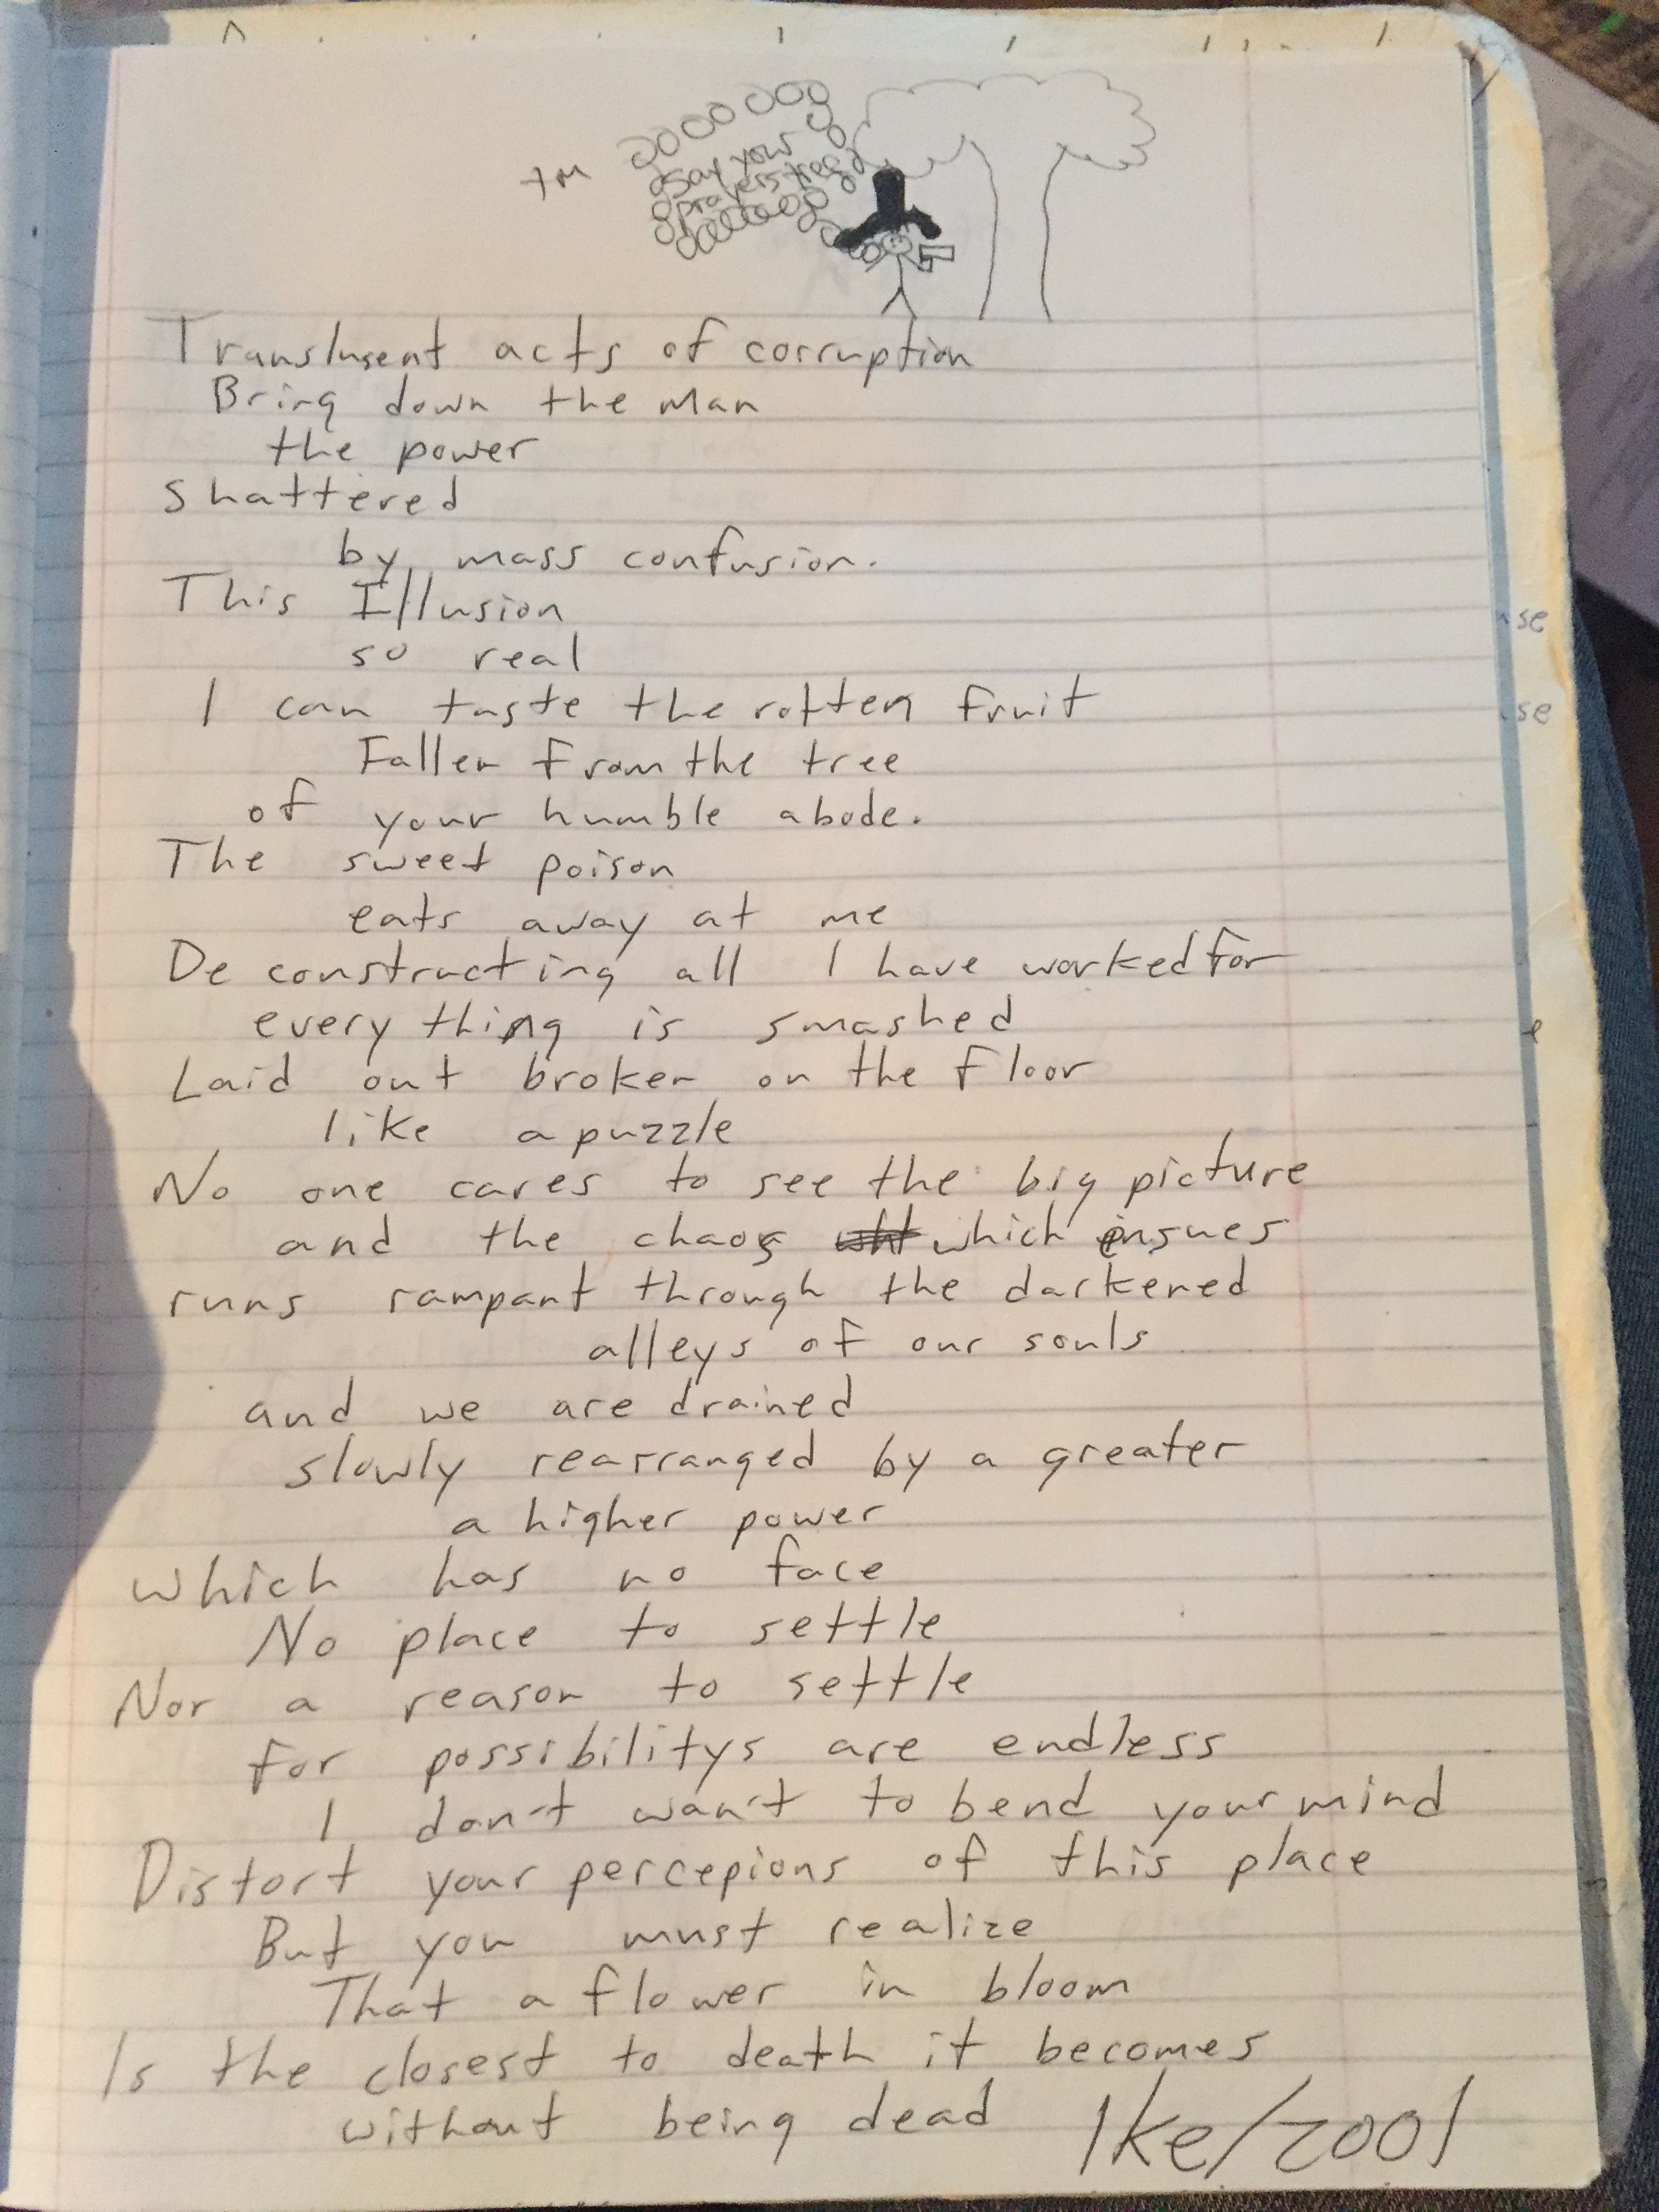 TM
say your
prayers tree
Translusent acts of corruption
Bring down the Man
the power
Shattered
by mass confusion.
This Illusion
so real
I can taste the rotten fruit
Fallen from the tree
of your humble abode.
The sweet poison
eats away at me
De constructing all I have worked for
every thing is smashed
Laid out broken on the floor
like a puzzle
No one cares to see the big picture
and the chaos which ensues
runs rampant through the darkened
alleys of our souls
and we are drained
slowly rearranged by a greater
a higher power
which has no face
No place to settle
Nor a reason to settle
for possibilitys are endless
I don't wan't to bend your mind
Distort your percepions of this place
But you must realize
That a flower in bloom
Is the closest to death it becomes
without being dead
Ike/2001
se
se
e